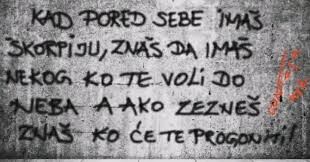 KAD PORED SEBE IMAŠ
ŠKORPIJU, ZNAŠ DA IMAŠ
NEKOG KO TE VOLI DO
NEBA A AKO ZEZNEŠ
ZNAŠ KO ĆE TE PROGONITI!